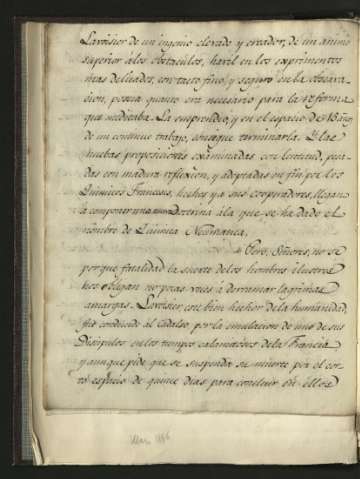 Lavoisier de un ingenio elevado y creador, de un animo
superior á los obstaculos, habil en los experimentos
mas delicados, con tacto fino, y seguro en la observa-
cion, poseia quanto era necesario para la reforma
que meditaba. La emprendio, y en el espacio de 15 años
de un continuo trabajo, consigue terminarla. Las
nuebas proposiciones examinadas con lentitud, pesa-
das con madura reflexion, y adoptadas en fin por los
Quimicos Franceses, hechos ya sus cooperadores, llegan
á componer una Doctrina á la que se ha dado el
nombre de Quimica Neumatica.
Pero, Señores, no se
por que fatalidad la suerte de los hombres ilustres
nos obligan no pocas veces á derramar lagrimas
amargas. Lavoisier este bien hechor de la humanidad,
fue conducido al cadalso por la emulacion de uno de sus
Discipulos en los tiempos calamitosos de la Francia
y aunque pide que se suspenda su muerte por el cor-
to espacio de quince dias para concluir en ellos